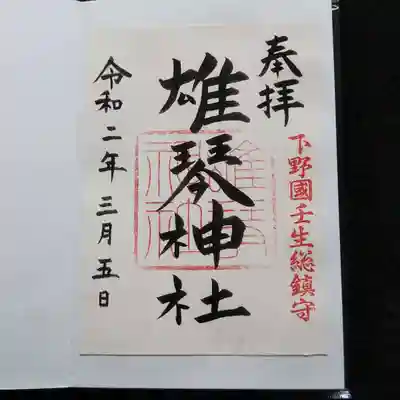 奉拝
下野國壬生総鎮守
雄琴神社
雄琴神社
令和二年三月五日